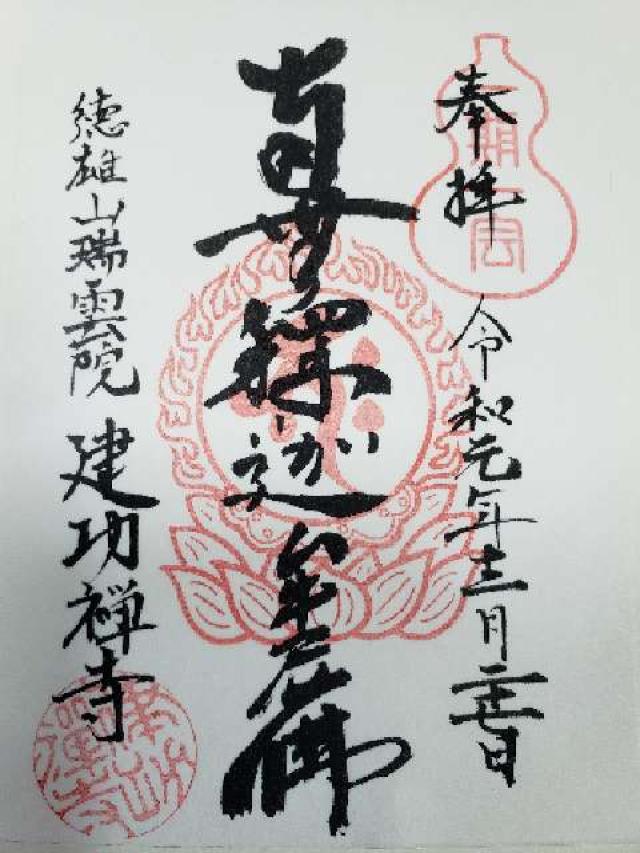 奉拝
令和元年十二月日
南無釋迦牟尼佛
徳雄山瑞雲院 建功禅寺